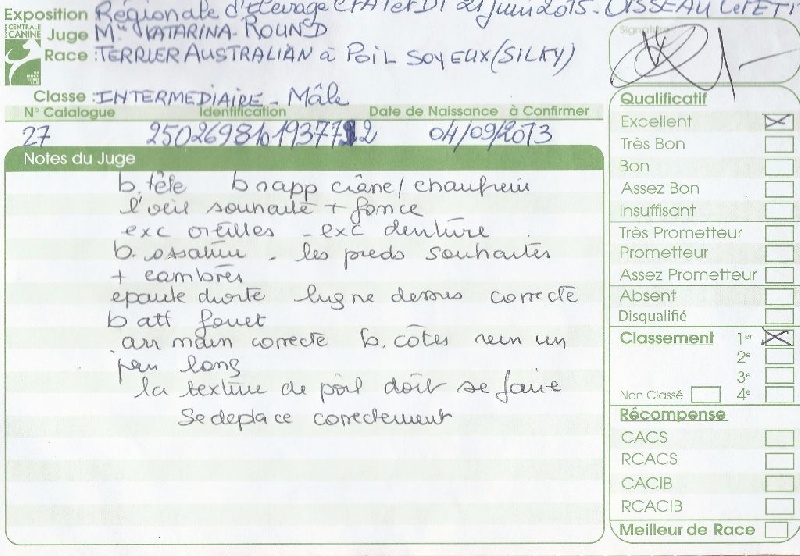 Exposition Régionale d'Elevage CFABAS DT 21 juin 2015 - OISSEAU LE PETIT
CENTRALE CANINE
Juge Me KATARINA ROUND
Race : TERRIER AUSTRALIAN à POIL SOYEUX (SILKY)
Classe : INTERMEDIAIRE - Mâle
N° Catalogue Identification Date de Naissance à Confirmer
27 04/09/2013
Notes du Juge
b. tête b rapp crâne / chanfrein
l'oeil souhaité + foncé
exc oreilles - exc denture
b. ossature - les pieds souhaités
+ cambrés
epaule droite ligne dessus correcte
b att fouet
arr main correcte b. côtes rein un
peu long
la texture de poil doit se faire
Se deplace correctement
Signature
Qualificatif
Excellent
Très Bon
Bon
Assez Bon
Insuffisant
Très Prometteur
Prometteur
Assez Prometteur
Absent
Disqualifié
Classement 1er
2e
3e
Non Classé 4e
Récompense
CACS
RCACS
CACIB
RCACIB
Meilleur de Race